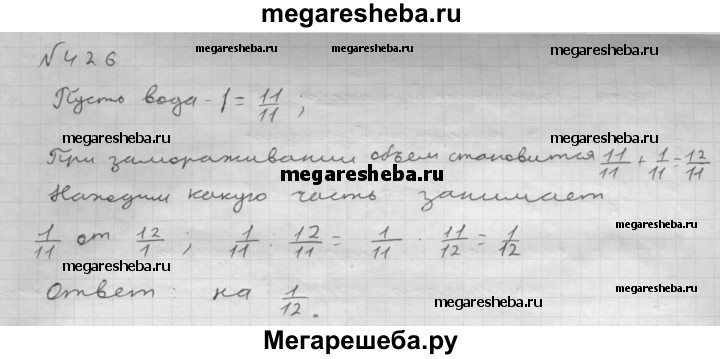 megaresheba.ru
№426 megaresheba.ru megaresheba.ru
Пусто вода - 1 = 11/11 ;
megaresheba.ru megaresheba.ru
При замораживании объем становится 11/11 + 1/11 = 12/11
megaresheba.ru
Находим какую часть занимает
1/11 от 12/1 ; 1/11 : 12/11 = 1/11 · 11/12 = 1/12
megaresheba.ru megaresheba.ru
Ответ: на 1/12. megaresheba.ru
Мегарешеба.ру